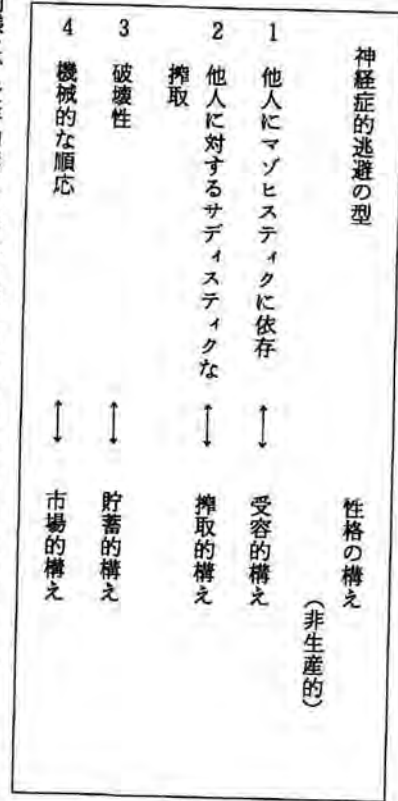 神経症的逃避の型　　性格の構え
（非生産的）
1　他人にマゾヒスティクに依存　⟷　受容的構え
2　他人に対するサディスティクな　⟷　搾取的構え
搾取
3　破壊性　⟷　貯蓄的構え
4　機械的な順応　⟷　市場的構え